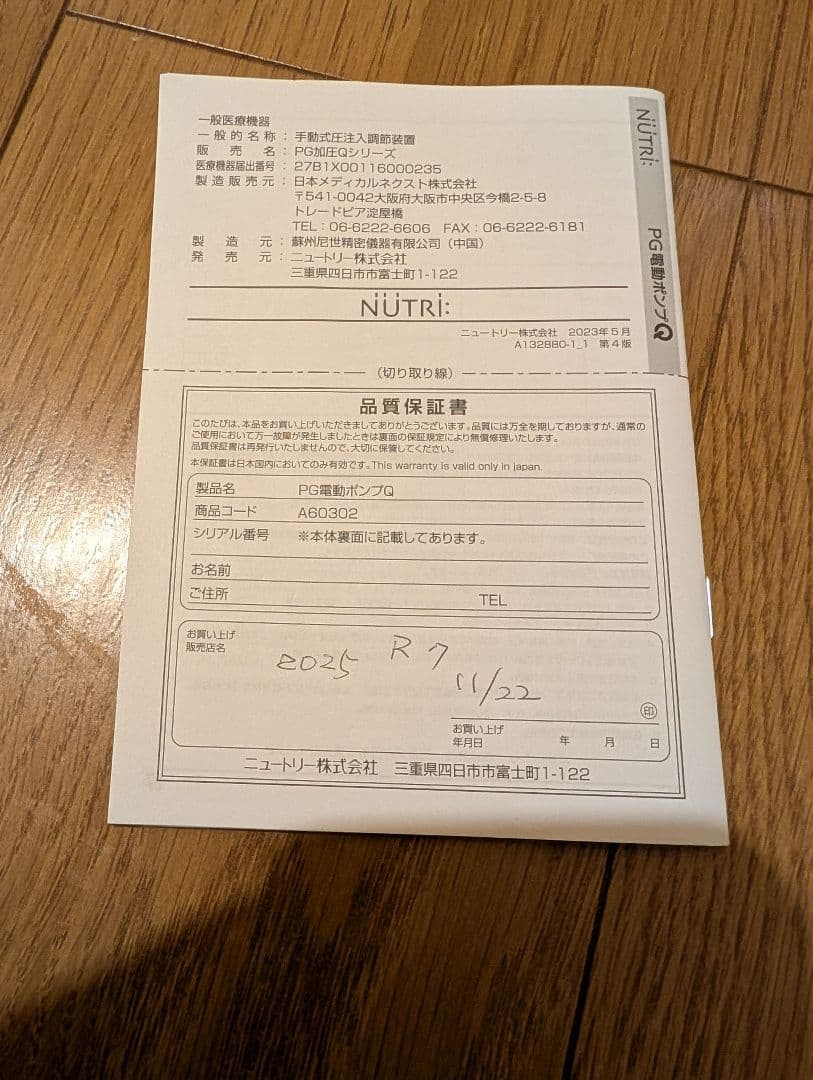 一般医療機器
一般的名称：手動式圧注入調節装置
販売名：PG加圧Qシリーズ
医療機器届出番号：27B1X00116000235
製造販売元：日本メディカルネクスト株式会社
〒541-0042大阪府大阪市中央区今橋2-5-8
トレードピア淀屋橋
TEL：06-6222-6606 FAX：06-6222-6181
製造元：蘇州尼世精密儀器有限公司（中国）
発売元：ニュートリー株式会社
三重県四日市市富士町1-122
NÜTRi:
ニュートリー株式会社 2023年5月
A132880-1_1 第4版
NÜTRi:
PG電動ポンプQ
（切り取り線）
品質保証書
このたびは、本品をお買い上げいただきましてありがとうございます。品質には万全を期しておりますが、通常の
ご使用において万一故障が発生しましたときは裏面の保証規定により無償修理いたします。
品質保証書は再発行いたしませんので、大切に保管してください。
本保証書は日本国内においてのみ有効です。This warranty is valid only in japan.
製品名 PG電動ポンプQ
商品コード A60302
シリアル番号 ※本体裏面に記載してあります。
お名前
ご住所 TEL
お買い上げ
販売店名
2025 R7
11/22
印
お買い上げ
年月日 年 月 日
ニュートリー株式会社 三重県四日市市富士町1-122